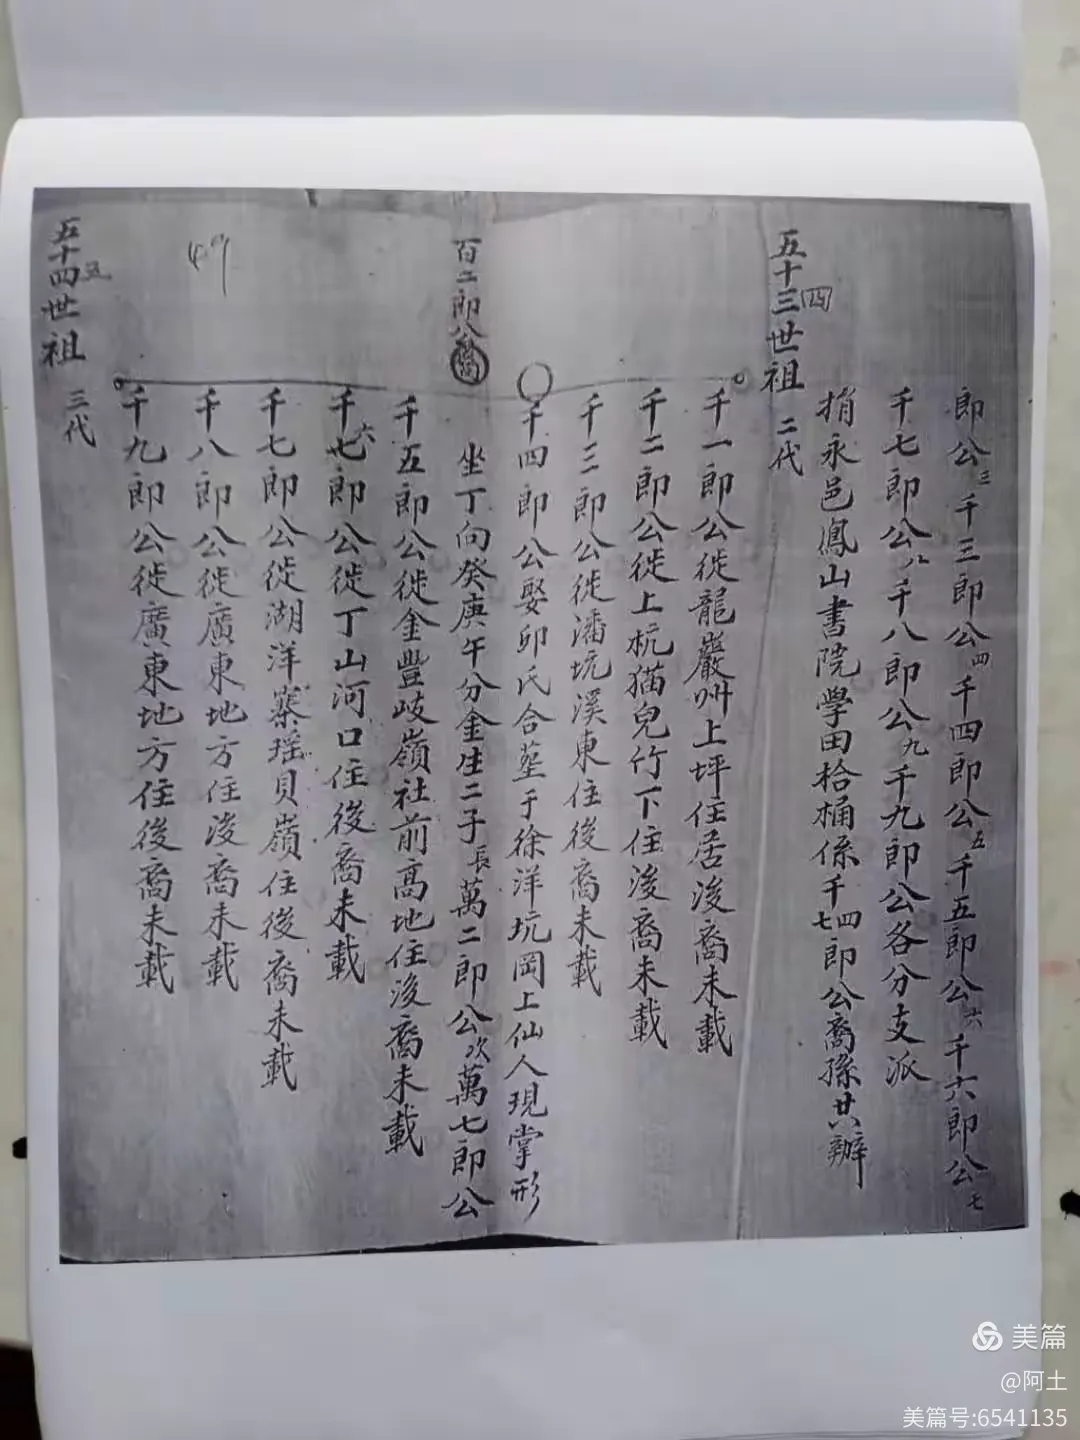 郎公三千三郎公四千四郎公五千五郎公六千六郎公七
千七郎公八千八郎公九千九郎公各分支派
捐永邑鳳山書院學田拾桶係千四七郎公裔孫共辦
五十三世祖 二代
四
千一郎公徙龍巖州上坪住居後裔未載
千二郎公徙上杭猫兒竹下住後裔未載
千三郎公徙潘坑溪東住後裔未載
千四郎公娶卯氏合塟于徐洋坑岡上仙人現掌形
百二郎公
坐丁向癸庚午分金生二子長萬二郎公次萬七郎公
千五郎公徙金豐岐嶺社前高地住後裔未載
千七六郎公徙丁山河口住後裔未載
千七郎公徙湖洋寨瑶貝嶺住後裔未載
千八郎公徙廣東地方住後裔未載
千九郎公徙廣東地方住後裔未載
49
五十四世祖 三代
五
美篇
@阿土
美篇号:6541135